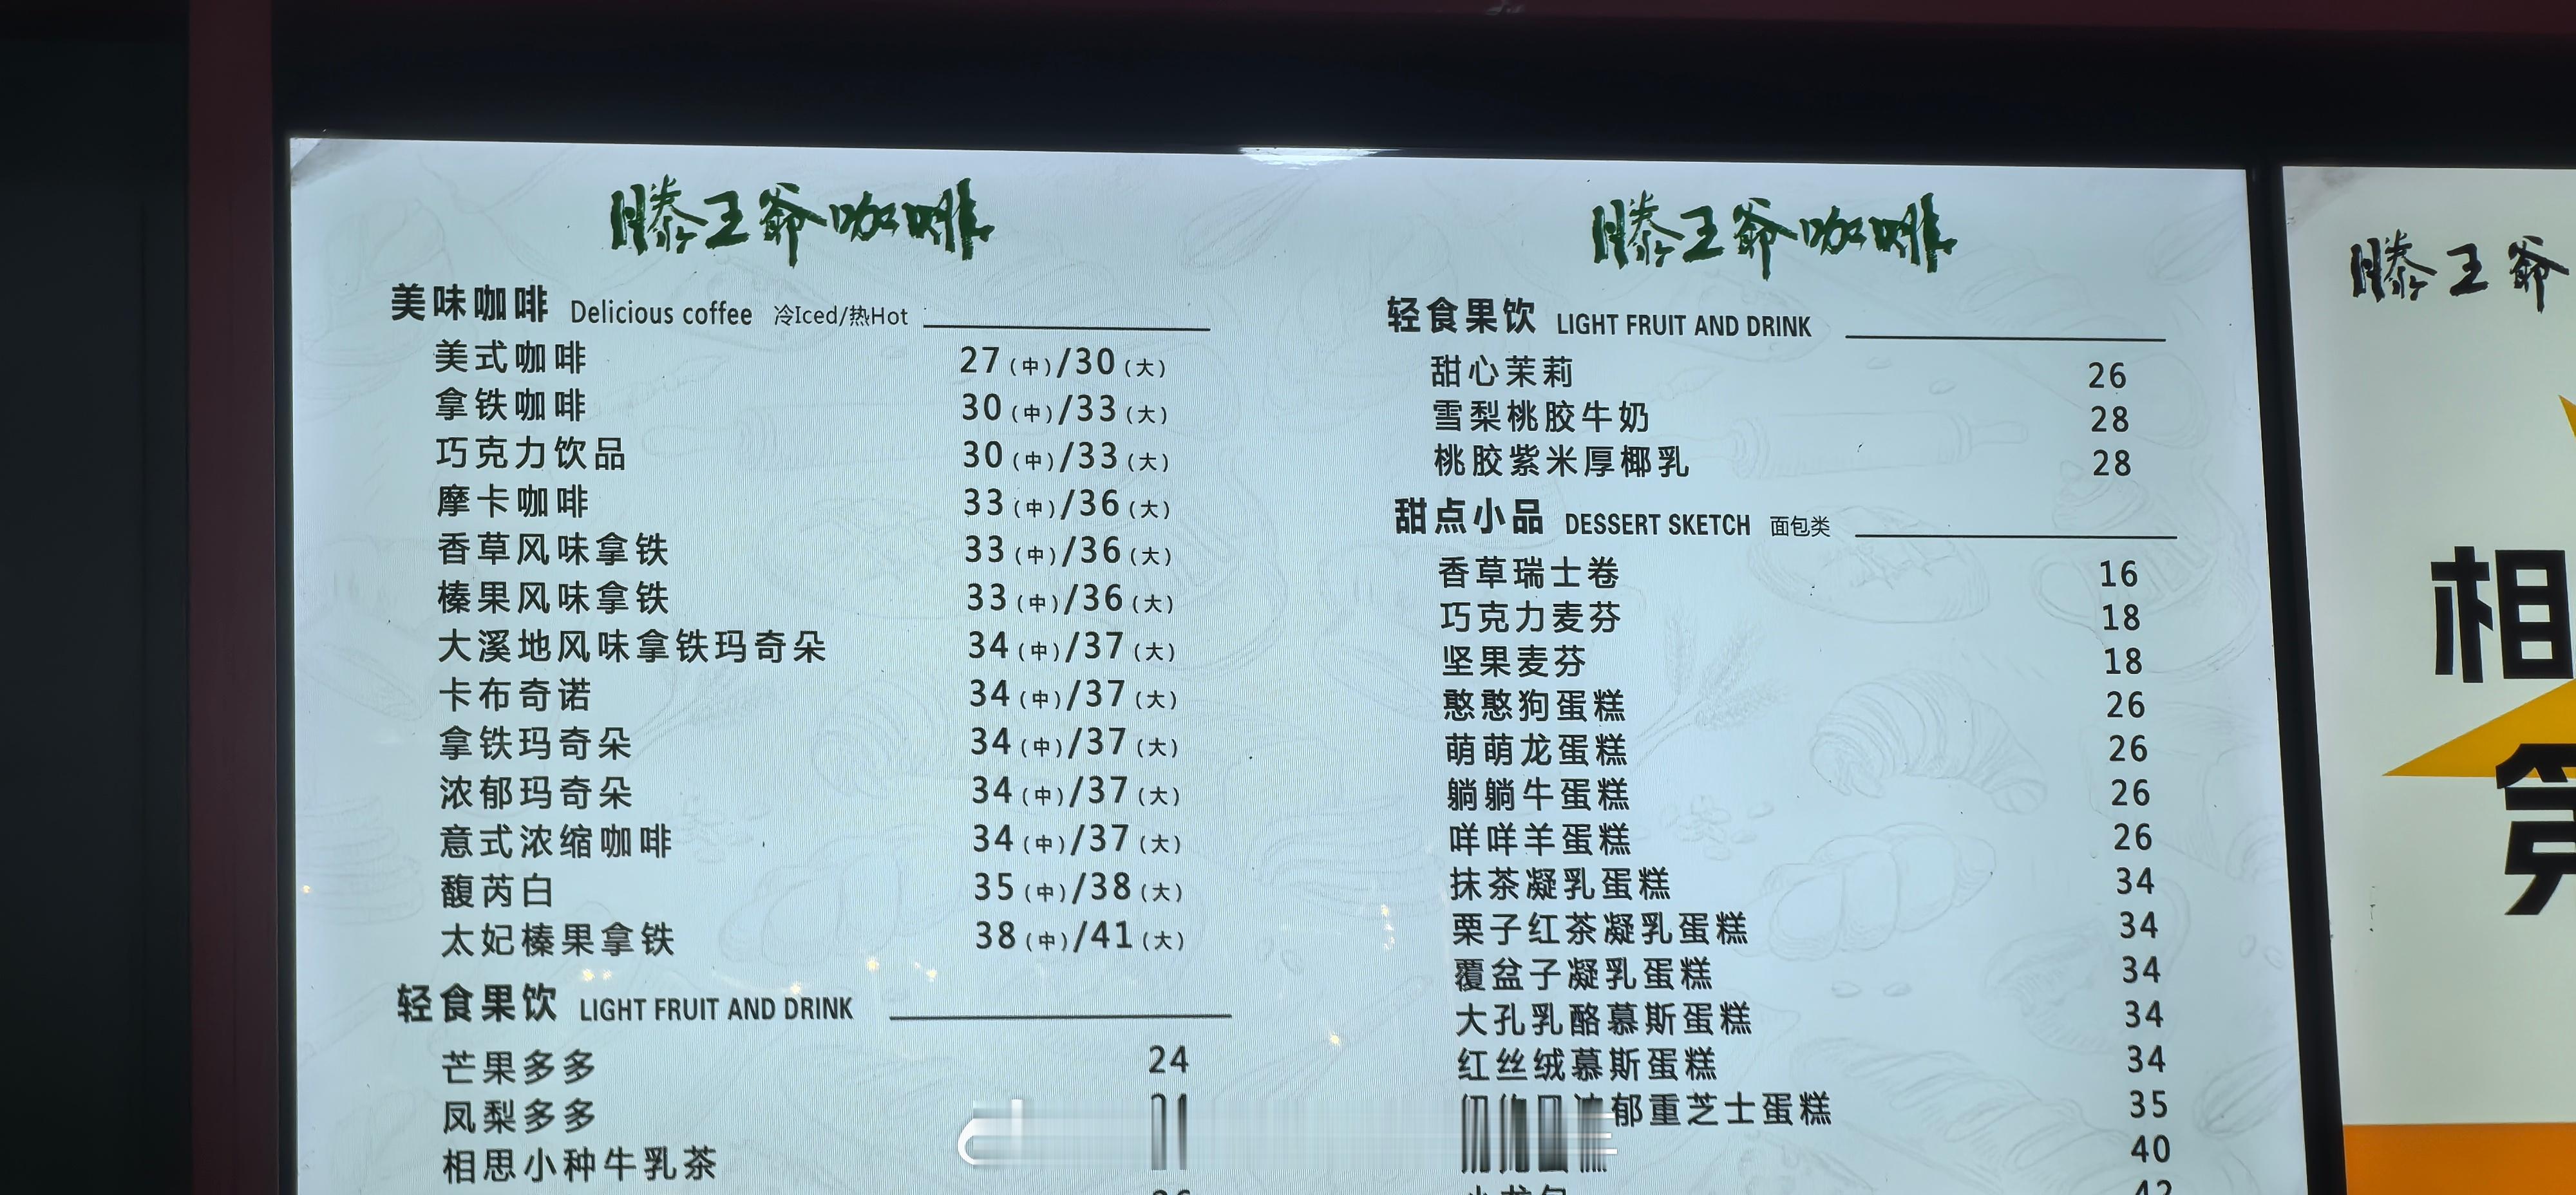 滕王爷咖啡
美味咖啡 Delicious coffee 冷Iced/热Hot
美式咖啡 27(中)/30(大)
拿铁咖啡 30(中)/33(大)
巧克力饮品 30(中)/33(大)
摩卡咖啡 33(中)/36(大)
香草风味拿铁 33(中)/36(大)
榛果风味拿铁 33(中)/36(大)
大溪地风味拿铁玛奇朵 34(中)/37(大)
卡布奇诺 34(中)/37(大)
拿铁玛奇朵 34(中)/37(大)
浓郁玛奇朵 34(中)/37(大)
意式浓缩咖啡 34(中)/37(大)
馥芮白 35(中)/38(大)
太妃榛果拿铁 38(中)/41(大)
轻食果饮 LIGHT FRUIT AND DRINK
芒果多多 24
凤梨多多
相思小种牛乳茶
滕王爷咖啡
轻食果饮 LIGHT FRUIT AND DRINK
甜心茉莉 26
雪梨桃胶牛奶 28
桃胶紫米厚椰乳 28
甜点小品 DESSERT SKETCH 面包类
香草瑞士卷 16
巧克力麦芬 18
坚果麦芬 18
憨憨狗蛋糕 26
萌萌龙蛋糕 26
躺躺牛蛋糕 26
咩咩羊蛋糕 26
抹茶凝乳蛋糕 34
栗子红茶凝乳蛋糕 34
覆盆子凝乳蛋糕 34
大孔乳酪慕斯蛋糕 34
红丝绒慕斯蛋糕 34
郁重芝士蛋糕 35
40
滕王爷
相